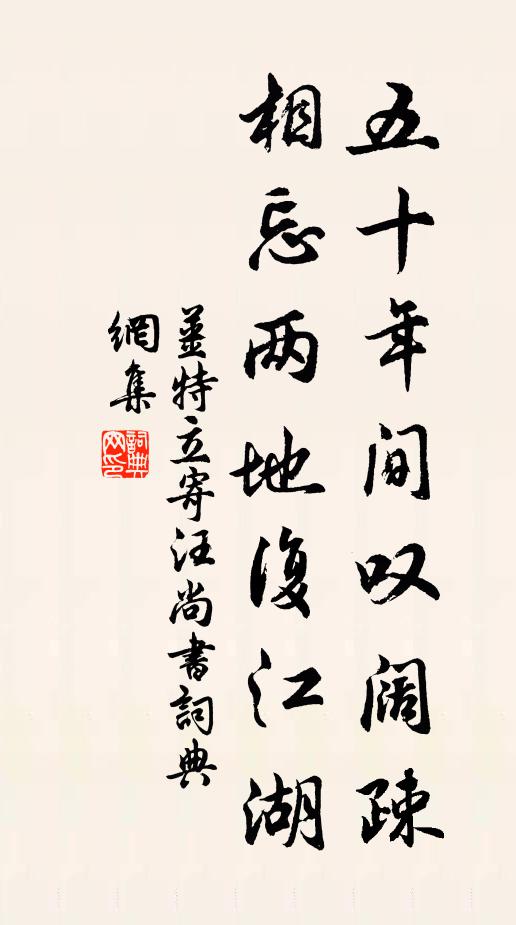 五十年间叹阔疎
相忘两地復江湖
姜特立寄汪尚書詞典
網集
詞典
网印